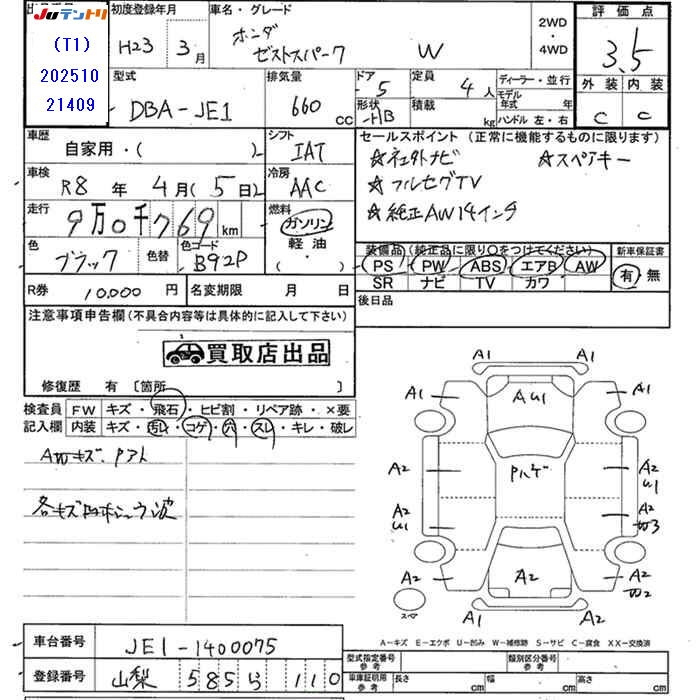 JUテントリ
(T1)
202510
21409
初度登録年月
H23 3月
車名・グレード
ホンダ
ゼストスパーク W
2WD
・
4WD
評価点
3.5
外装 内装
C C
型式
DBA-JE1
排気量
660 cc
ドア 5
形状 HB
定員 4人
積載 kg
ディーラー・並行
モデル年式 年
ハンドル 左・右
車歴
自家用・( )
シフト
IAT
セールスポイント (正常に機能するものに限ります)
☆社外ナビ ☆スペアキー
☆フルセグTV
☆純正AW14インチ
車検
R8年 4月(5日)
冷房
AAC
走行
9万0千769km
燃料
ガソリン
軽油
( )
色
ブラック
色替
色コード
B92P
装備品 (純正品に限り○をつけてください)
PS PW ABS エアB AW
SR ナビ TV カワ
新車保証書
有・無
R券 10,000円
名変期限 月 日
後日品
注意事項申告欄(不具合内容等は具体的に記入して下さい)
買取店出品
修復歴 有 〔箇所 〕
検査員
記入欄
FW キズ・飛石・ヒビ割・リペア跡・×要
内装 キズ・汚レ・コゲ・穴・スレ・キレ・破レ
AWキズ、Pアト
A1 A1
A1 AU1 A1
A2 Pハゲ A2
U1
A2 A2
U1 W3
A2 A2 A2
W2
A1 A1
スペア
A-キズ E-エクボ U-凹み W-補修跡 S-サビ C-腐食 XX-交換済
車台番号 JE1-1400075
登録番号 山梨 585 ら 110
型式指定番号 参考
類別区分番号 参考
車庫証明用 参考 長さ cm 幅 cm 高さ cm